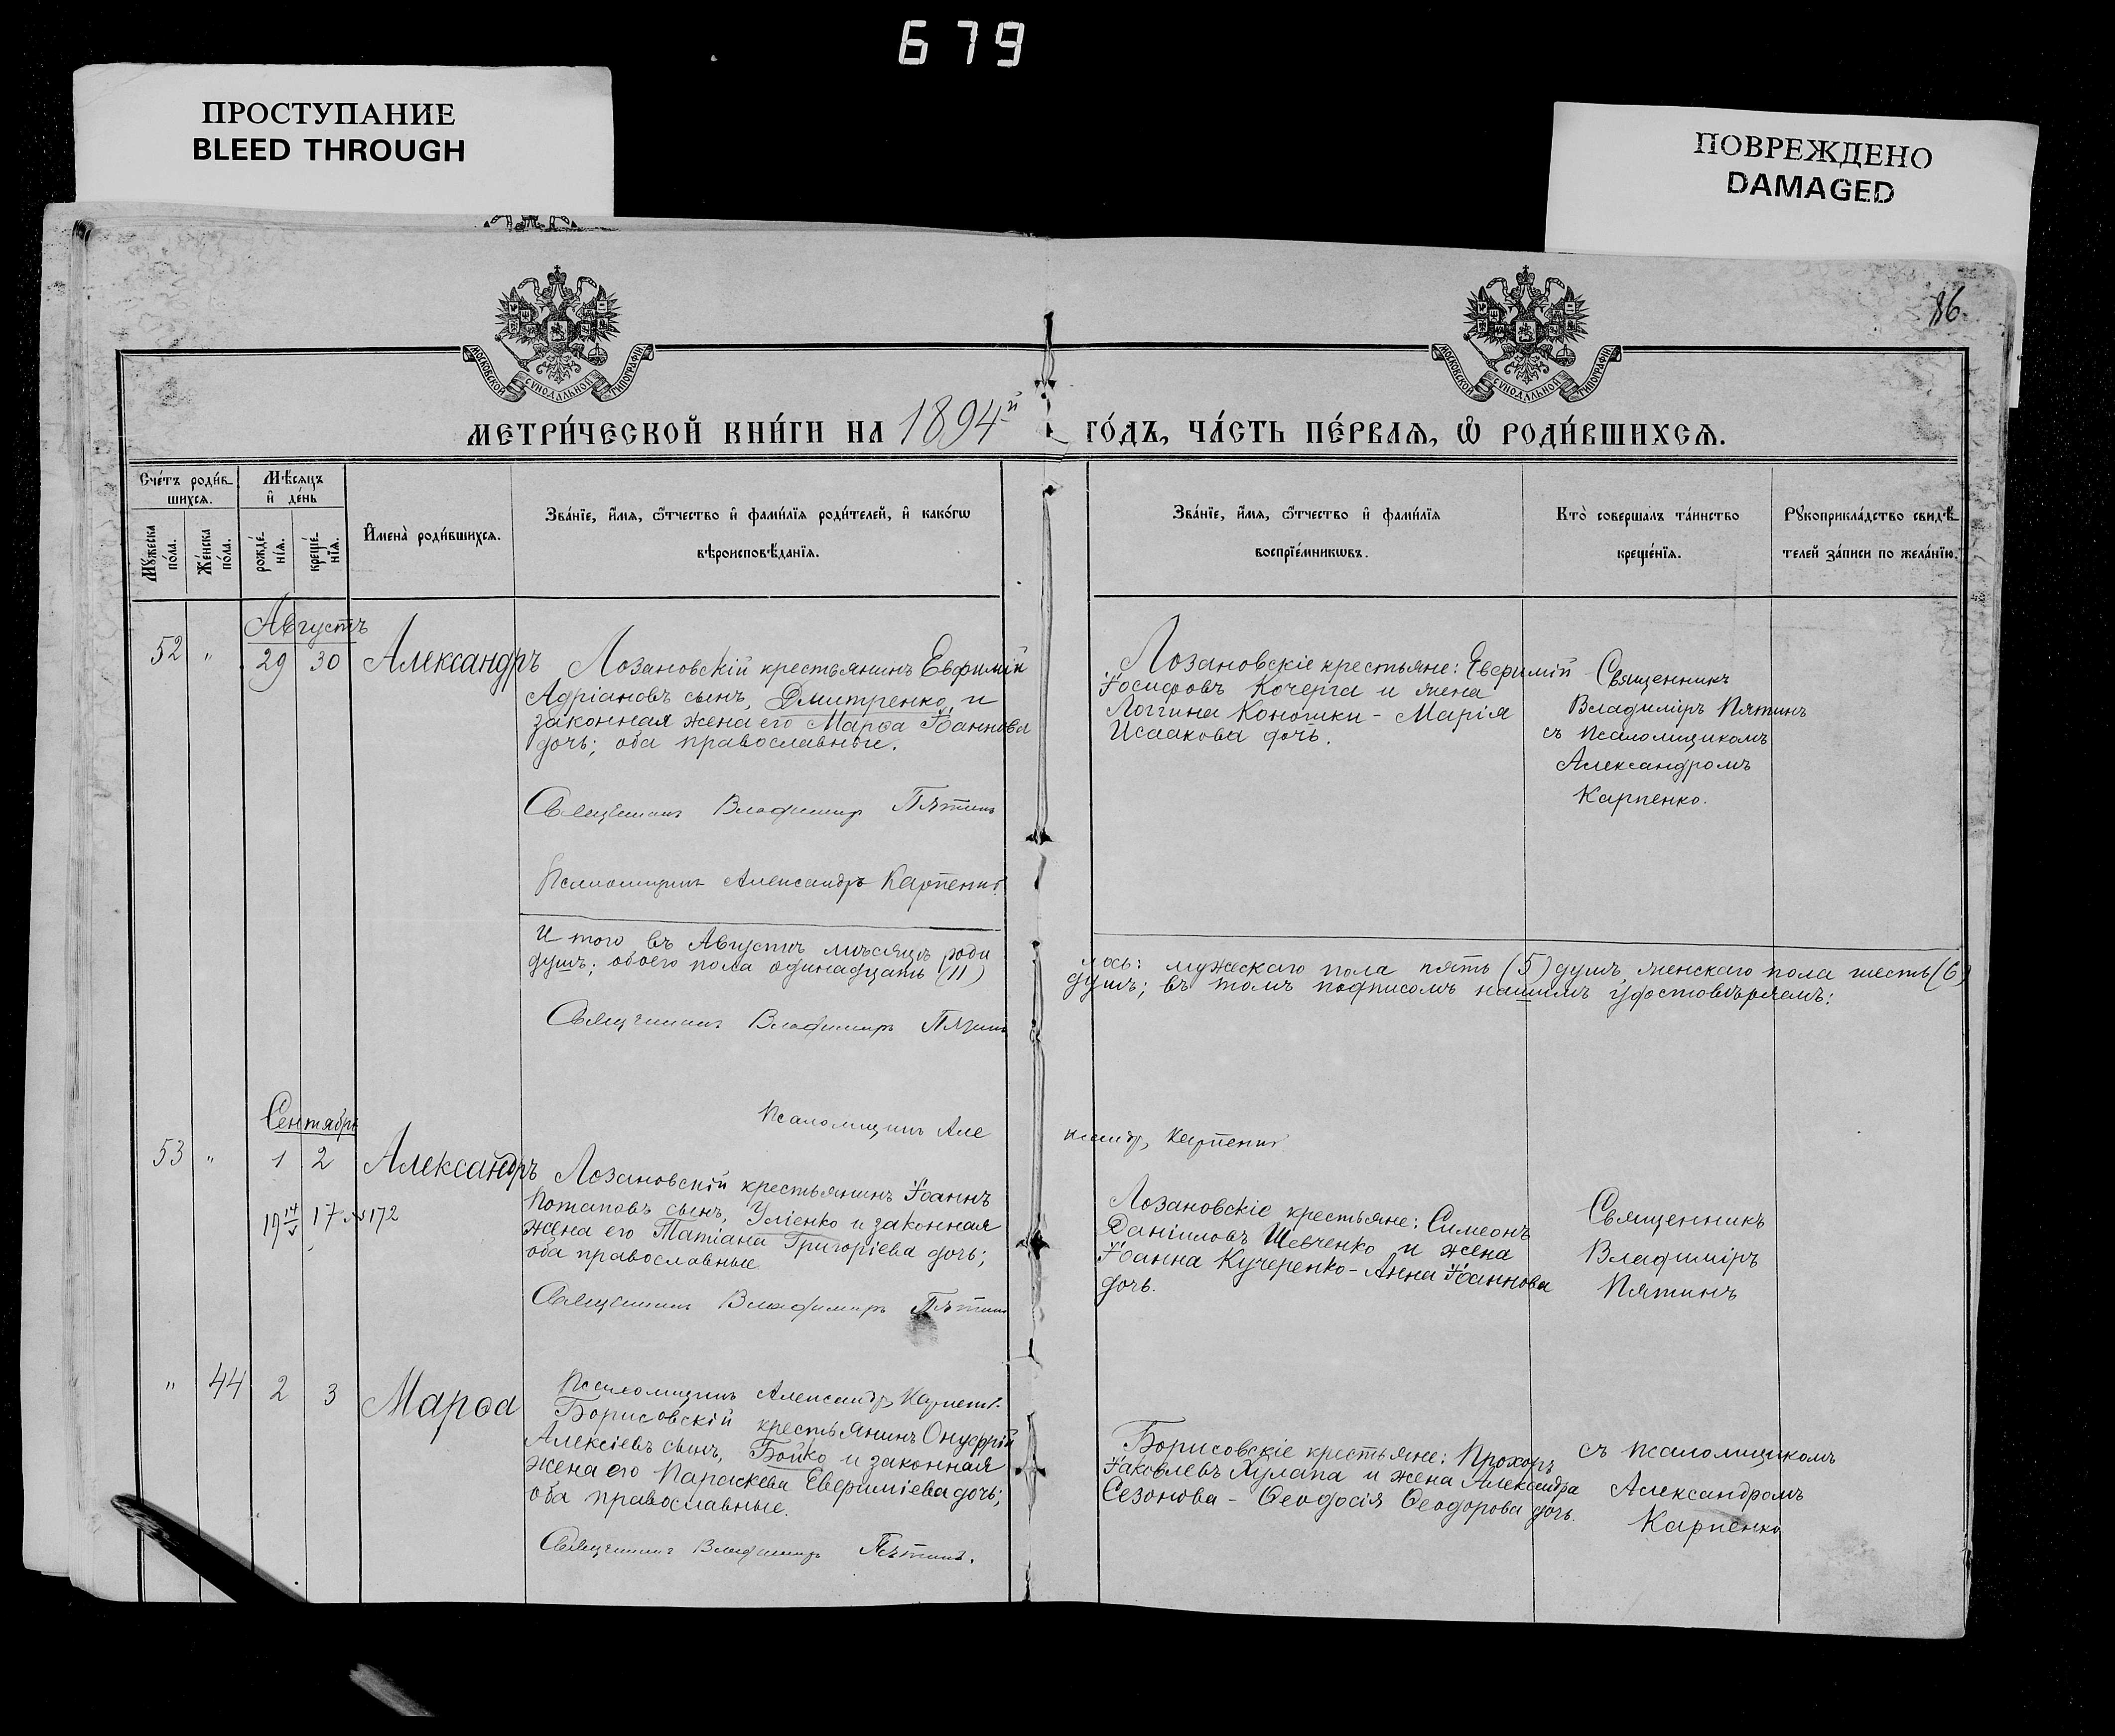 679
ПРОСТУПАНИЕ
BLEED THROUGH
ПОВРЕЖДЕНО
DAMAGED
86
МОСКОВСКОЙ СѴНОДАЛЬНОЙ ТИПОГРАФІИ
МОСКОВСКОЙ СѴНОДАЛЬНОЙ ТИПОГРАФІИ
МЕТРИ́ЧЕСКОЙ КНИ́ГИ НА 1894й ГО́ДЪ, ЧА́СТЬ ПЕ́РВАѦ, Ѽ РОДИ́ВШИХСѦ.
Сче́тъ роди́в-
шихсѧ.
Мѣ́сѧцъ
и҆ де́нь
Мꙋ́жеска по́ла.
Же́нска по́ла.
рожде́-
нїѧ.
креще́-
нїѧ.
И҆мена̀ роди́вшихсѧ.
Зва́нїе, и҆́мѧ, ѻ҆́тчество и҆ фами́лїѧ роди́телей, и҆ како́гѡ
вѣроисповѣ́данїѧ.
Зва́нїе, и҆́мѧ, ѻ҆́тчество и҆ фами́лїѧ
воспрїе́мникѡвъ.
Кто̀ соверша́лъ та́инство
креще́нїѧ.
Рꙋкоприкла́дство свидѣ́-
телей за́писи по жела́нїю.
Августъ
52 " 29 30 Александръ
Лозановскій крестьянинъ Евфимій
Адріановъ сынъ, Дмитренко, и
законная жена его Марѳа Іоаннова
дочь; оба православные.
Священникъ Владимиръ Пятинъ
Псаломщикъ Александръ Карпенко
Лозановскіе крестьяне: Евфимій
Іосифовъ Кочерга и жена
Логгина Коношки - Марія
Исаакова дочь.
Священникъ
Владиміръ Пятинъ
съ псаломщикомъ
Александромъ
Карпенко.
И того въ Августѣ мѣсяцѣ роди
лось: мужескаго пола пять (5) душъ, женскаго пола шесть (6)
душъ; обоего пола одинадцать (11)
душъ; въ томъ подписомъ нашимъ удостовѣряемъ:
Священникъ Владимиръ Пятинъ
Псаломщикъ Але
ксандръ Карпенко
Сентябрь
53 " 1 2 Александръ
17 №172
Лозановскій крестьянинъ Іоаннъ
Потаповъ сынъ, Уліенко и законная
жена его Татіана Григоріева дочь;
оба православные.
Священникъ Владимиръ Пятинъ
Псаломщикъ Александръ Карпенко
Лозановскіе крестьяне: Симеонъ
Даніиловъ Шевченко и жена
Іоанна Кучеренко - Анна Іоаннова
дочь.
Священникъ
Владиміръ
Пятинъ
" 44 2 3 Марѳа
Борисовскій крестьянинъ Онуфрій
Алексіевъ сынъ, Бойко и законная
жена его Параскева Евфиміева дочь;
оба православные.
Священникъ Владимиръ Пятинъ.
Борисовскіе крестьяне: Прохоръ
Іаковлевъ Хулапа и жена Александра
Сезонова - Ѳеодосія Ѳеодорова дочь.
съ псаломщикомъ
Александромъ
Карпенко